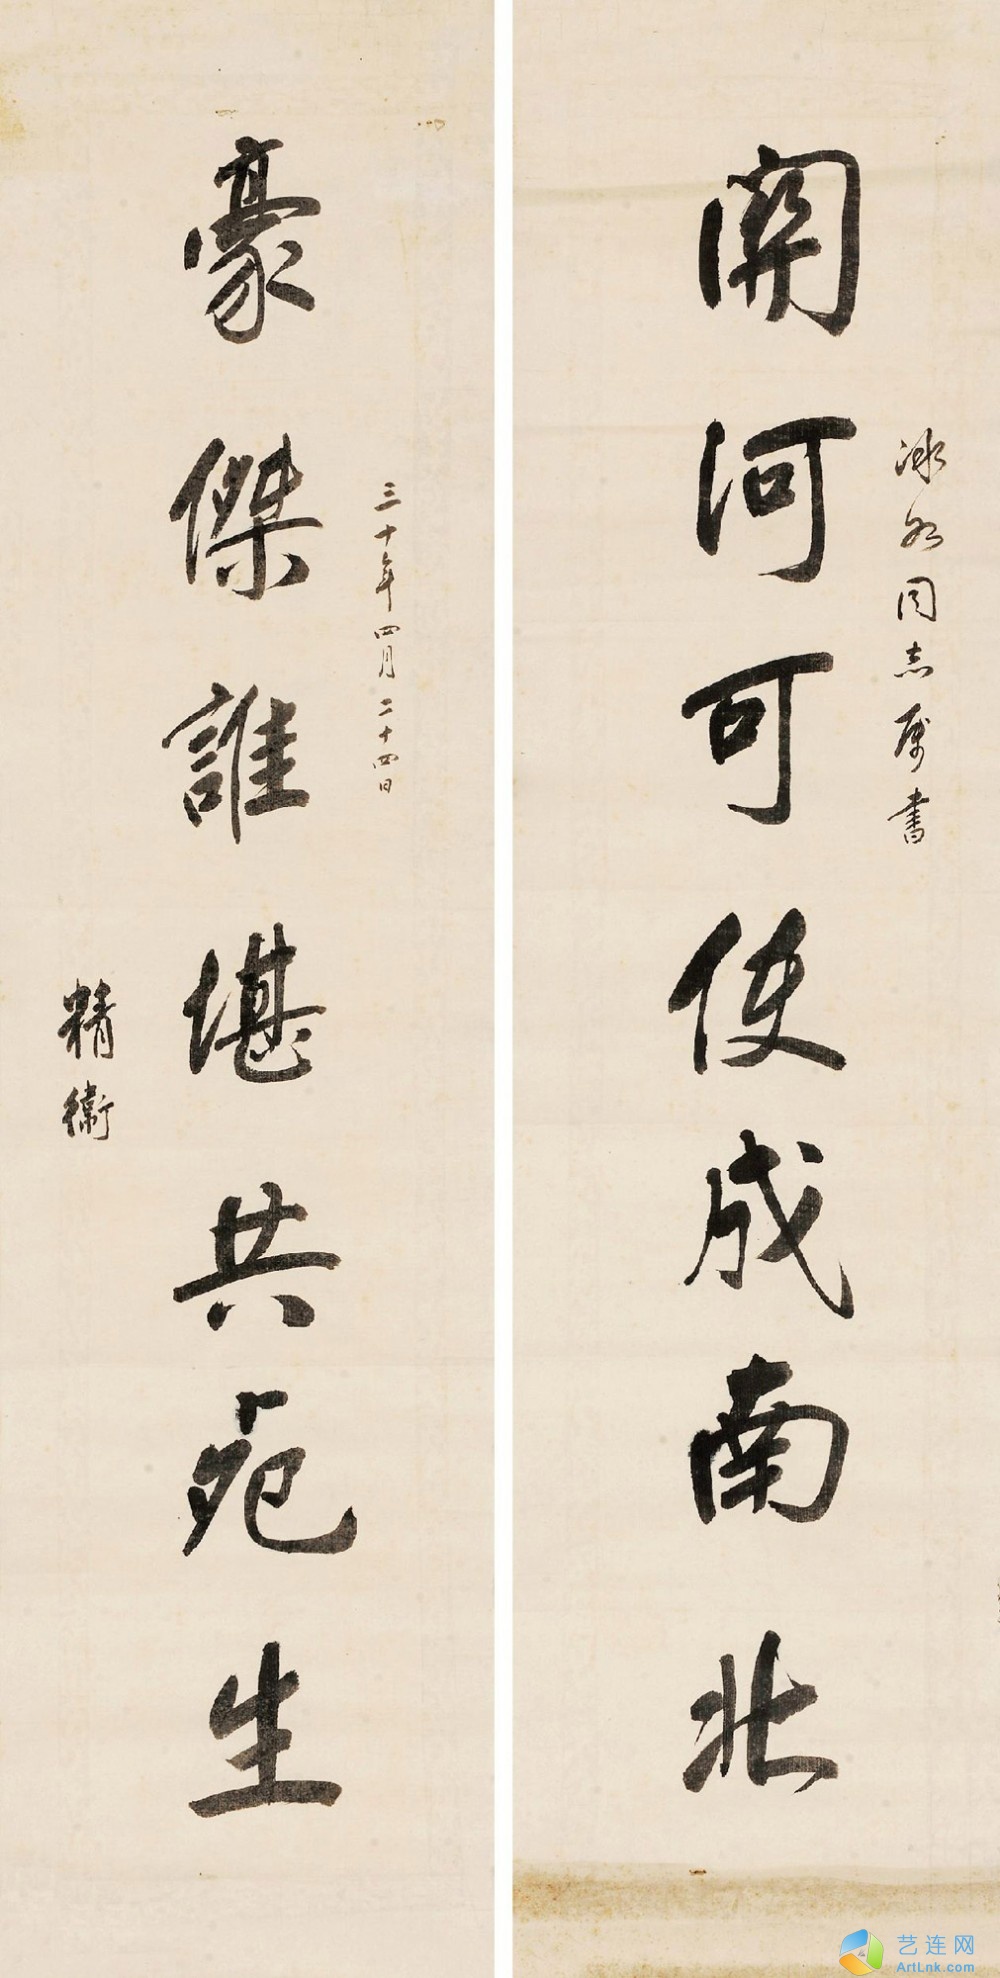 冰如同志属书
關河可使成南北
豪傑誰堪共死生
三十年四月二十四日
精衛
艺连网
ArtLnk.com